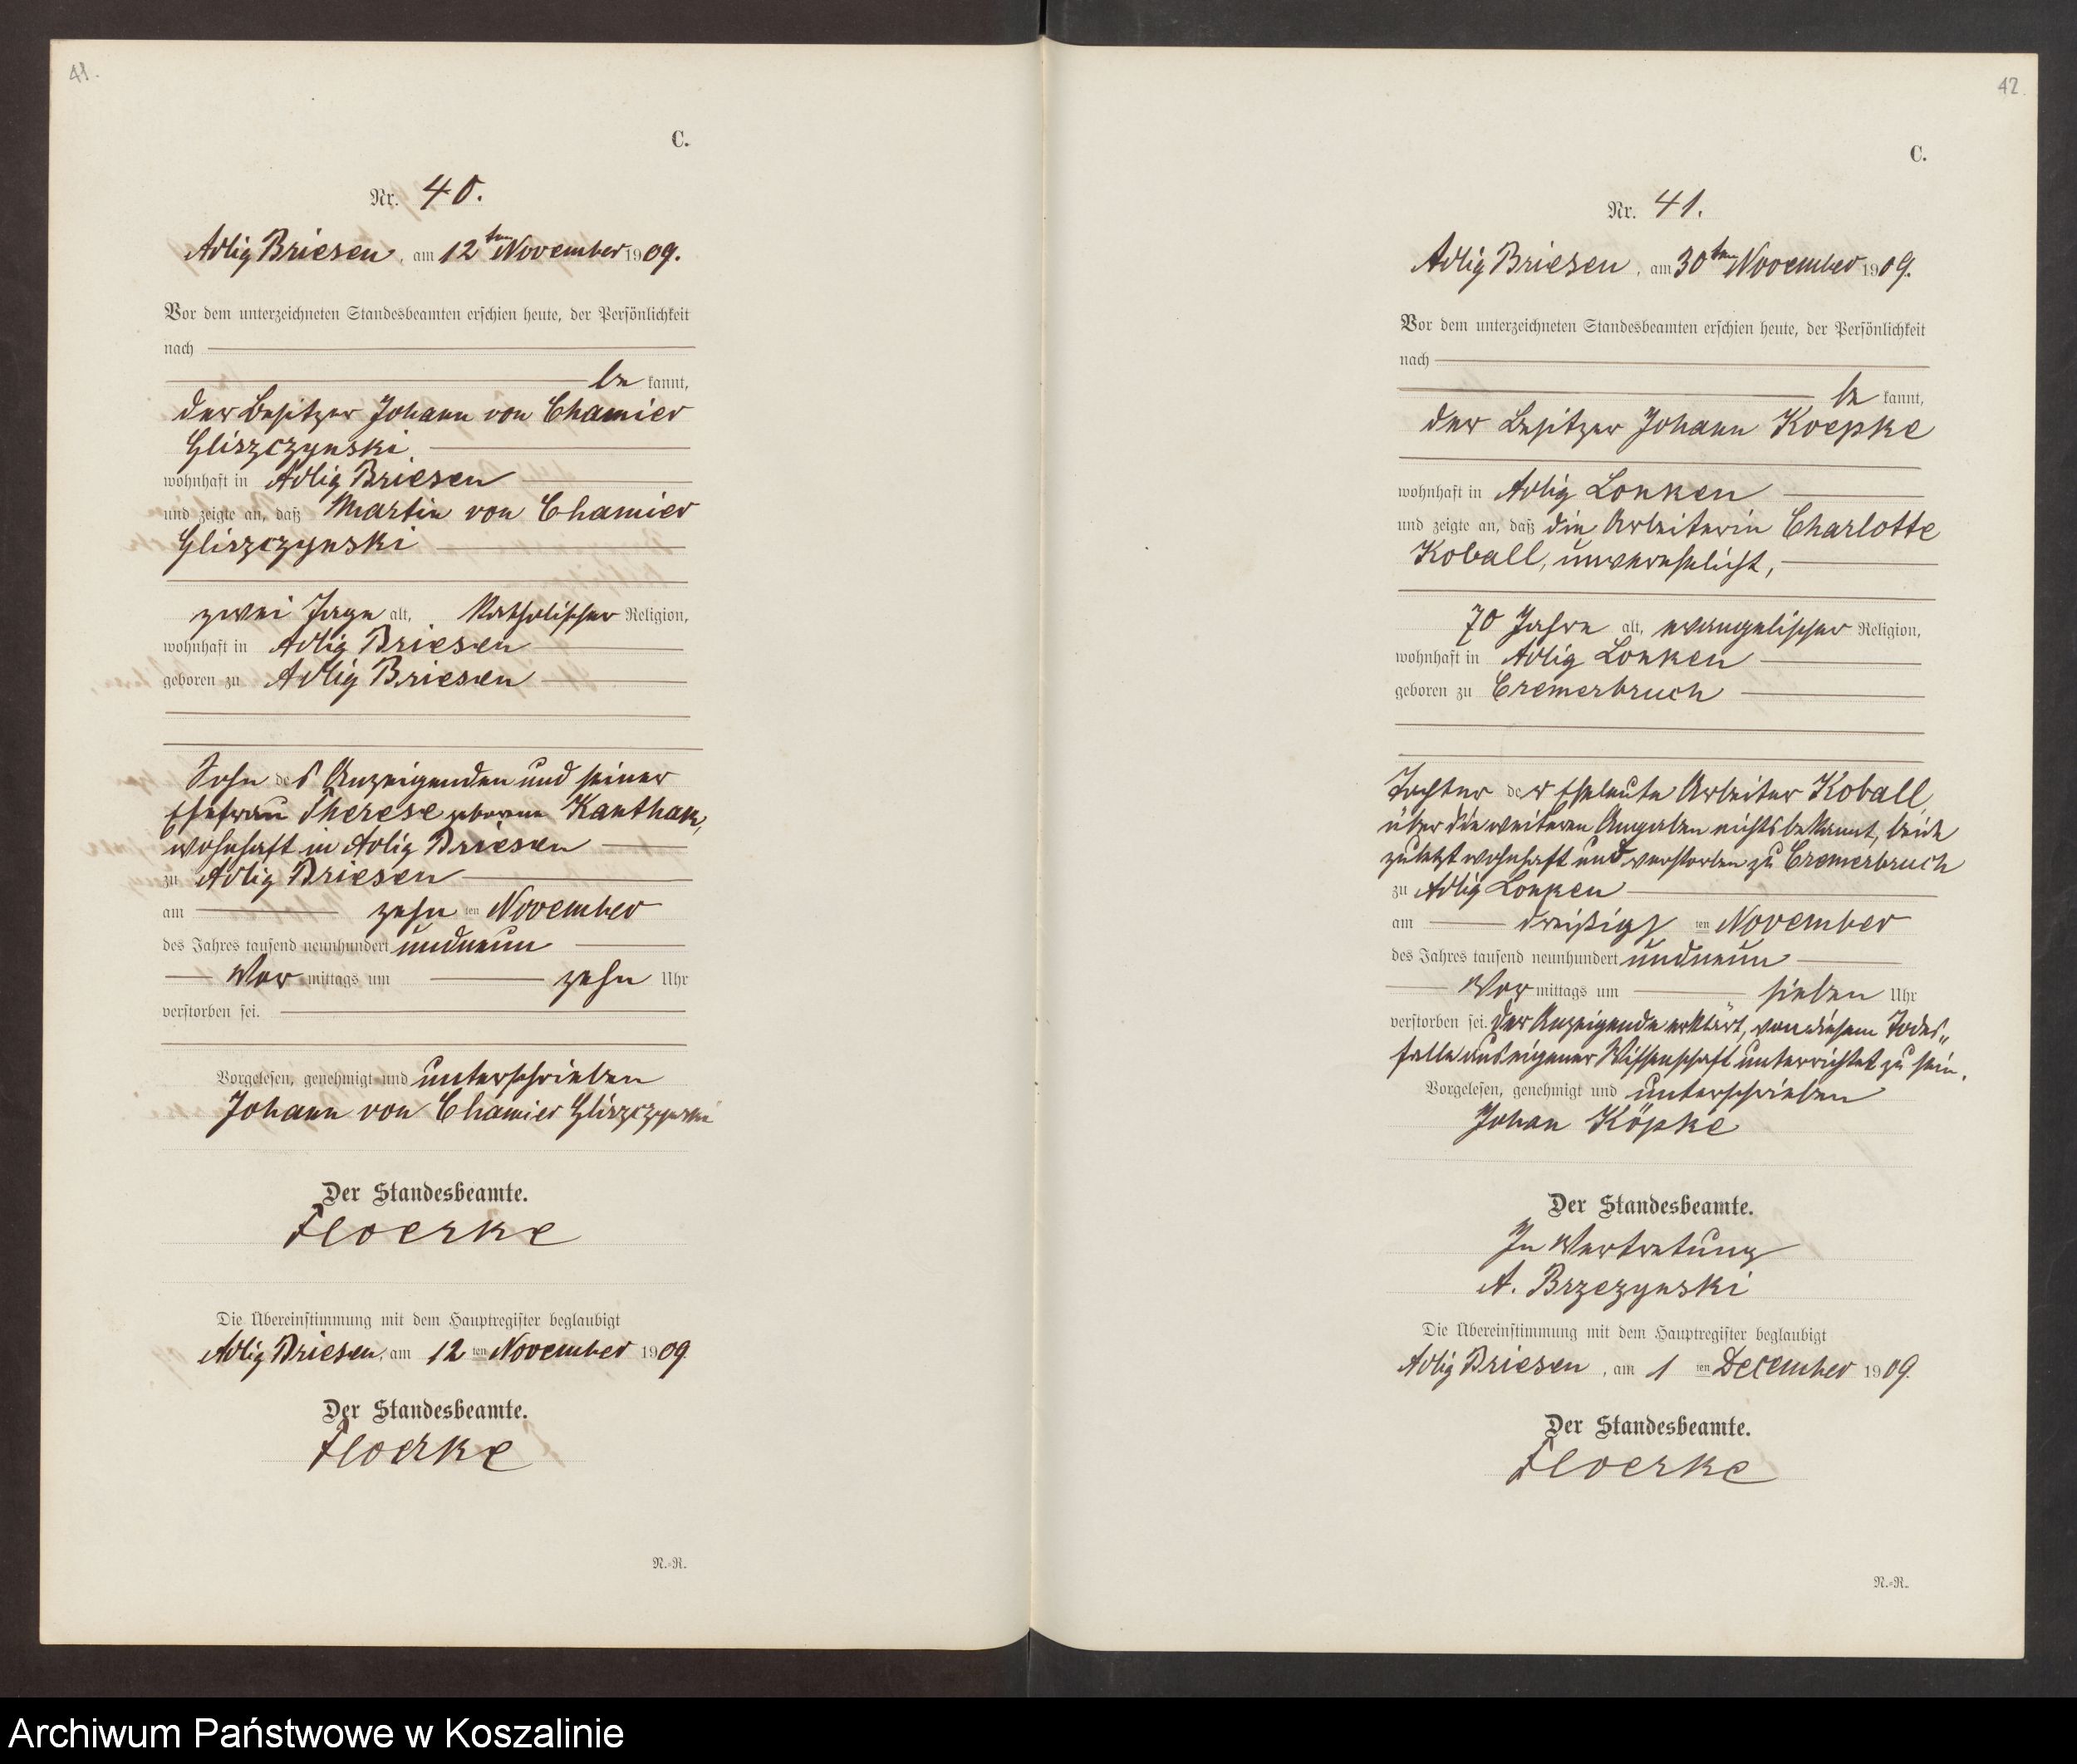 41.
C.
Nr. 40.
Adlig Briesen, am 12ten November 1909.
Vor dem unterzeichneten Standesbeamten erschien heute, der Persönlichkeit
nach
be kannt,
der Besitzer Johann von Chamier
Gliszczynski
wohnhaft in Adlig Briesen
und zeigte an, daß Martin von Chamier
Gliszczynski
zwei Tage alt, katholischer Religion,
wohnhaft in Adlig Briesen
geboren zu Adlig Briesen
Sohn des Anzeigenden und seiner
Ehefrau Therese geborene Kanthak,
wohnhaft in Adlig Briesen
zu Adlig Briesen
am zehnten November
des Jahres tausend neunhundert undneun
Vor mittags um zehn Uhr
verstorben sei.
Vorgelesen, genehmigt und unterschrieben
Johann von Chamier Gliszczynski
Der Standesbeamte.
Floerke
Die Übereinstimmung mit dem Hauptregister beglaubigt
Adlig Briesen, am 12ten November 1909
Der Standesbeamte.
Floerke
N.-R.
42.
C.
Nr. 41.
Adlig Briesen, am 30ten November 1909.
Vor dem unterzeichneten Standesbeamten erschien heute, der Persönlichkeit
nach
be kannt,
der Besitzer Johann Koepke
wohnhaft in Adlig Lonken
und zeigte an, daß die Arbeiterin Charlotte
Koball, unverehelicht,
70 Jahre alt, evangelischer Religion,
wohnhaft in Adlig Lonken
geboren zu Cremerbruch
Tochter der Eheleute Arbeiter Koball,
über die weiteren Angaben nichts bekannt, beide
zuletzt wohnhaft und verstorben zu Cremerbruch
zu Adlig Lonken
am dreißigsten November
des Jahres tausend neunhundert undneun
Vor mittags um sieben Uhr
verstorben sei. Der Anzeigende erklärt, von diesem Todes„
falle aus eigener Wissenschaft unterrichtet zu sein.
Vorgelesen, genehmigt und unterschrieben
Johan Köpke
Der Standesbeamte.
In Vertretung
A. Brzezynski
Die Übereinstimmung mit dem Hauptregister beglaubigt
Adlig Briesen, am 1ten December 1909.
Der Standesbeamte.
Floerke
N.-R.
Archiwum Państwowe w Koszalinie